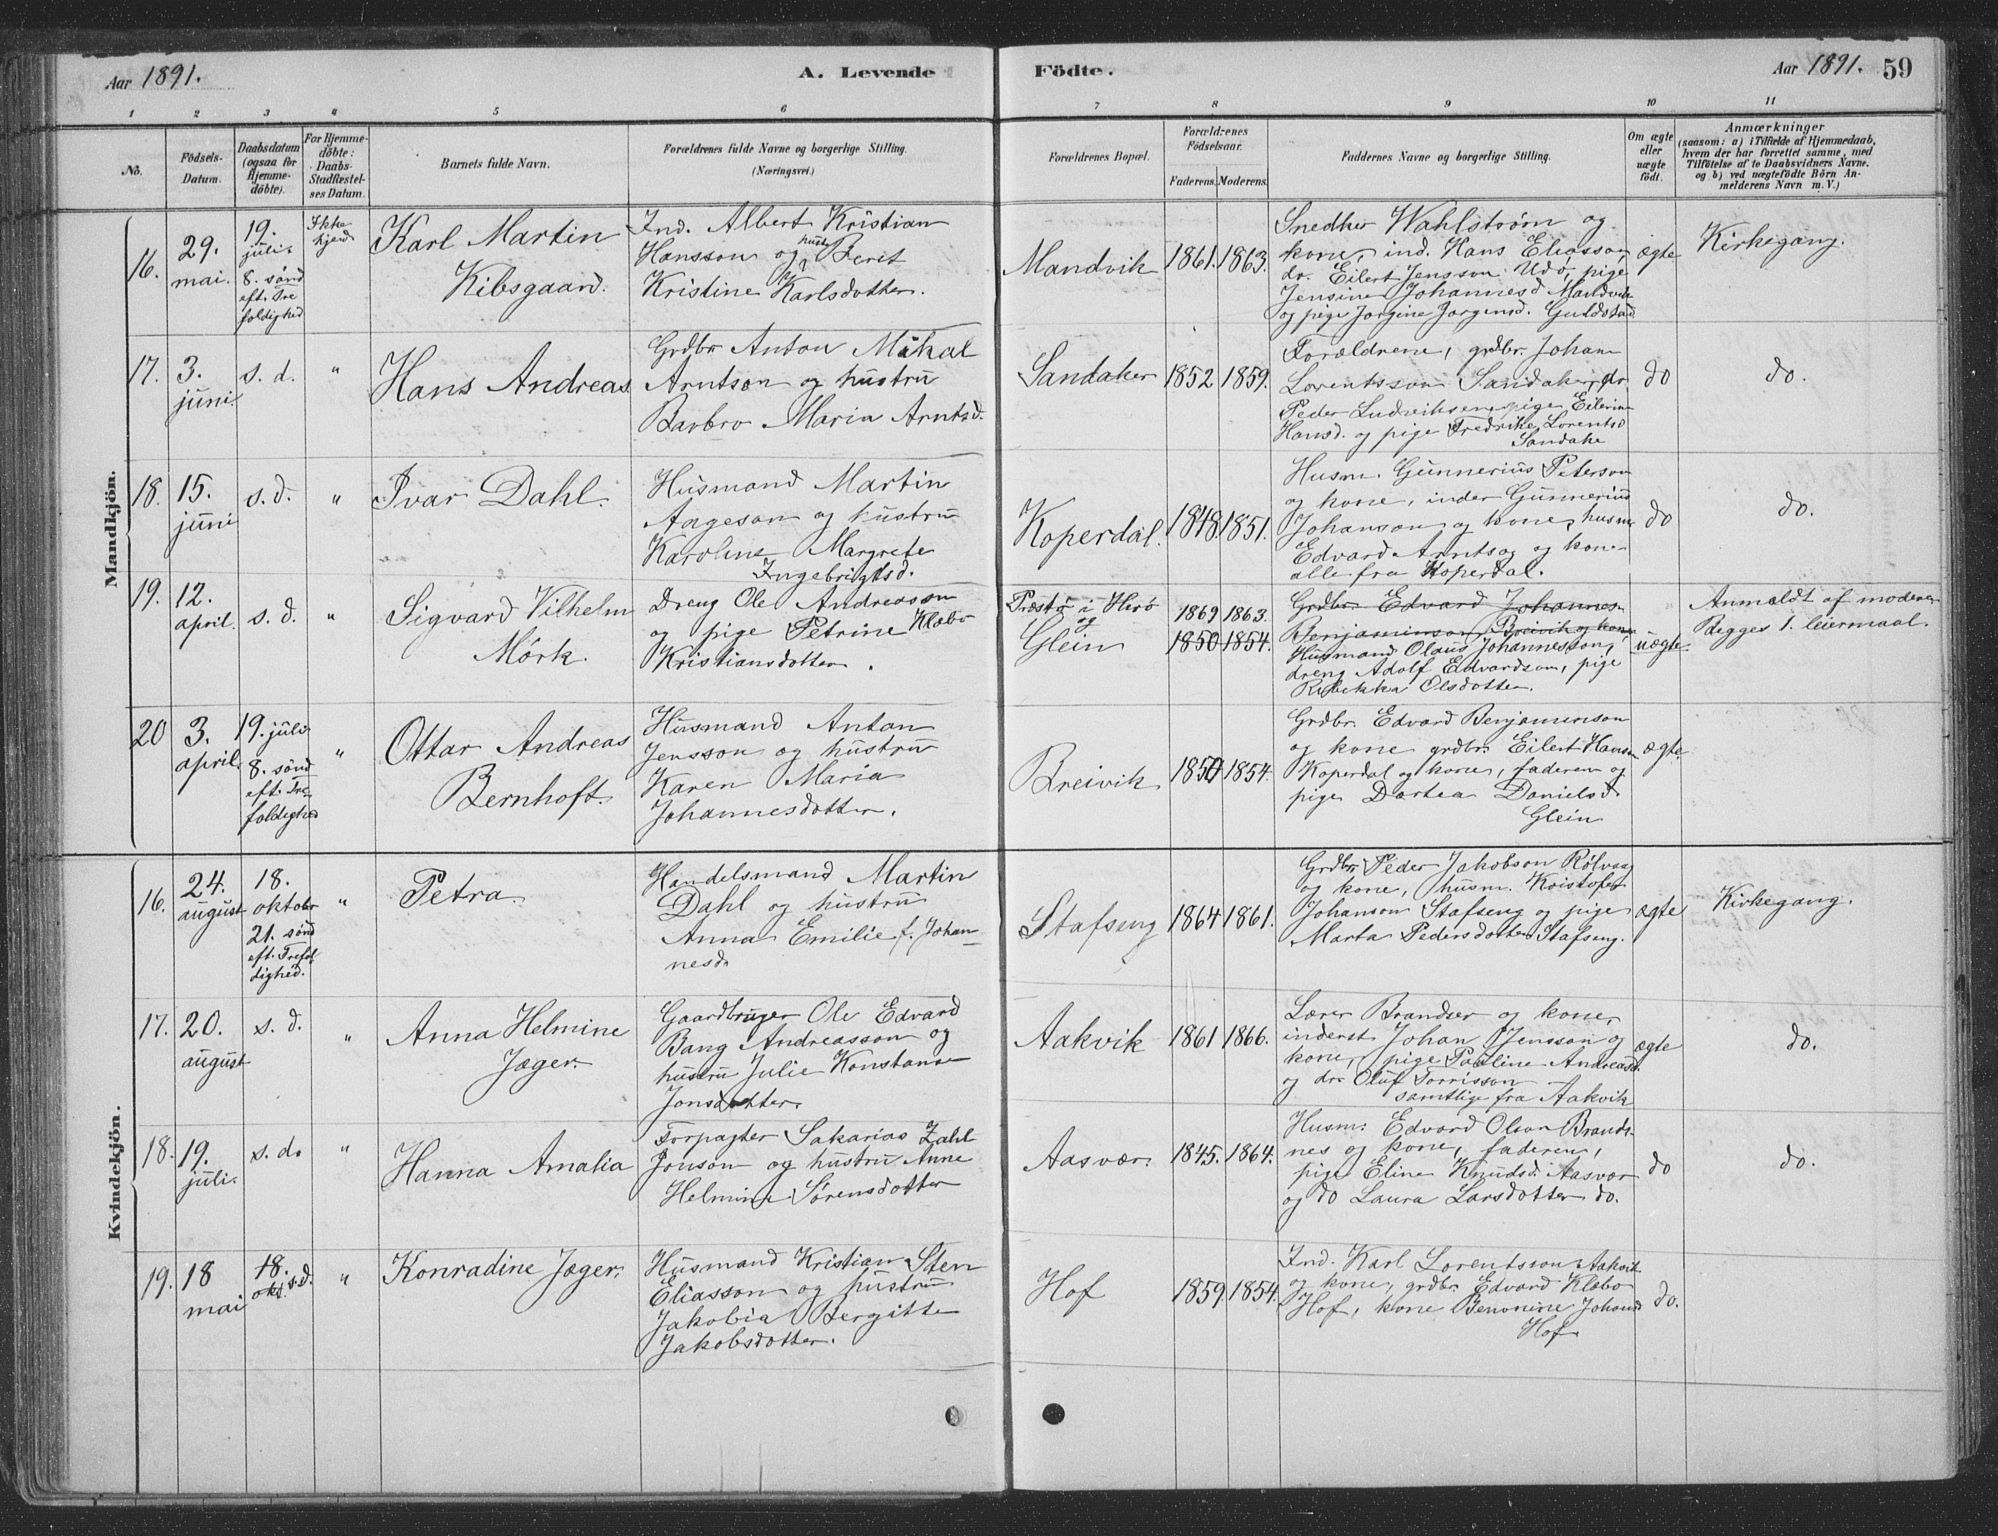 Aar 1891.
A. Levende Födte.
Aar 1891. 59
1 2 3 4 5 6 7 8 9 10 11
No.
Födsels-
Datum.
Daabsdatum
(ogsaa for
Hjemme-
döbte).
For Hjemme-
döbte:
Daabs-
Stadfæstel-
ses Datum.
Barnets fulde Navn.
Forældrenes fulde Navne og borgerlige Stilling.
(Næringsvei.)
Forældrenes Bopæl.
Forældrenes
Födselsaar.
Faderens. Moderens.
Faddernes Navne og borgerlige Stilling.
Om ægte
eller
uægte
födt.
Anmærkninger
(saasom: a) i Tilfælde af Hjemmedaab,
hvem der har forrettet samme, med
Tilföielse af to Daabsvidners Navne.
og b) ved uægtefödte Börn An-
melderens Navn m. V.)
Mandkjön.
16.
29.
mai.
19.
juli.
8. sönd
eft. Tre
foldighed
Ikke
kjend
Karl Martin
Kibsgaard.
Ind. Albert Kristian
Hansson og hustr Berit
Kristine Karlsdotter.
Mandvik
1861. 1863.
Snedker Wahlström og
kone, ind. Hans Eliasson,
dr. Eilert Jensson Udö, pige
Jensine Johannesd Mandvik
og pige Jorgine Jorgensd. Guldstad
ægte
Kirkegang.
17.
3.
juni.
s. d.
"
Hans Andreas
Grdbr Anton Mikal
Arntson og hustru
Barbro Maria Arntsd.
Sandaker
1852 1859.
Forældrene, grdbr. Johan
Lorentsson Sandaker, dr.
Peder Ludviksen pige Eilerine
Hansd. og pige Fredrike Lorentsd
Sandake
do
do.
18.
15.
juni
s. d.
"
Ivar Dahl.
Husmand Martin
Aageson og hustru
Karoline Margrete
Ingebrigtsd.
Koperdal.
1848. 1851.
Husm. Gunnerius Peterson
og kone, inder Gunnerius
Johanson og kone, husm
Edvard Arntsog og kone
alle fra Koperdal.
do
do.
19.
12.
april.
s. d.
"
Sigvard Vilhelm
Mörk.
Dreng Ole Andreasson
og pige Petrine Klæbo
Kristiansdotter.
Præstö i Herö
og
Glein
1869 1863.
1850 1854.
Grdbr. Edvard Johannes
Benjaminson Breivik og kone
Husmand Olaus Johannesson,
dreng Adolf Edvardson, pige
Rebekka Olsdotter.
uægte.
Anmeldt af moderen
Begges 1. leiermaal.
20
3.
april.
19. juli
8. sönd
eft. Tre
foldighed
"
Ottar Andreas
Bernhoft.
Husmand Anton
Jensson og hustru
Karen Maria
Johannesdotter.
Breivik
1850 1854.
Grdbr. Edvard Benjaminson
og kone grdbr. Eilert Hansn
Koperdal og kone, faderen og
pige Dortea Danielsd
Glein
ægte.
Kvindekjön.
16.
24.
august
18.
oktobr
21. sönd
eft. Trefol
dighed.
"
Petra
Handelsmand Martin
Dahl og hustru
Anna Emilie f. Johan-
nesd.
Stafseng
1864 1861.
Grdbr. Peder Jakobson Rölvaag
og kone, husm. Kristofer
Johanson Stafseng og pige
Marta Pedersdotter Stafseng.
ægte
Kirkegang.
17.
20.
august
s. d.
"
Anna Helmine
Jæger.
Gaardbruger Ole Edvard
Bang Andreasson og
hustru Julie Konstanse
Jonsdotter.
Aakvik
1861 1866.
Lærer Brandser og kone,
inderst Johan Jensson og
kone, pige Pauline Andreasd.
og dr. Oluf Torrisson
samtlige fra Aakvik
ægte
do.
18.
19.
juli.
s. d.
"
Hanna Amalia
Forpagter Sakarias Zahl
Jonson og hustru Anne
Helmine Sörensdotter
Aasvær.
1845. 1864.
Husm. Edvard Olson Brands-
nes og kone, faderen,
pige Eline Knudsd. Aasvær
og do Laura Larsdotter do.
do
do.
19.
18
mai
18.
okt. s. d.
"
Konradine Jæger.
Husmand Kristian Sten
Eliasson og hustru
Jakobia Bergitte
Jakobsdotter.
Hof
1859 1854.
Ind. Karl Lorentsson Aakvik
og kone, grdbr. Edvard Klæbo
Hof, kone Benonine Johansd
Hof.
do.